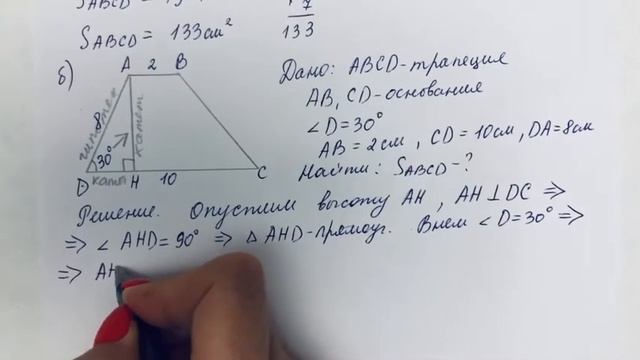 SABCD = 133 см²
7
133
б)
A 2 B
8
гипотен
катет
30°
D катет H 10 C
Дано: ABCD-трапеция
AB, CD-основания
∠D=30°
AB=2см, CD=10см, DA=8см
Найти: SABCD-?
Решение. Опустим высоту AH, AH⊥DC ⇒
⇒ ∠AHD=90° ⇒ △AHD-прямоуг. В нем ∠D=30° ⇒
⇒ AH